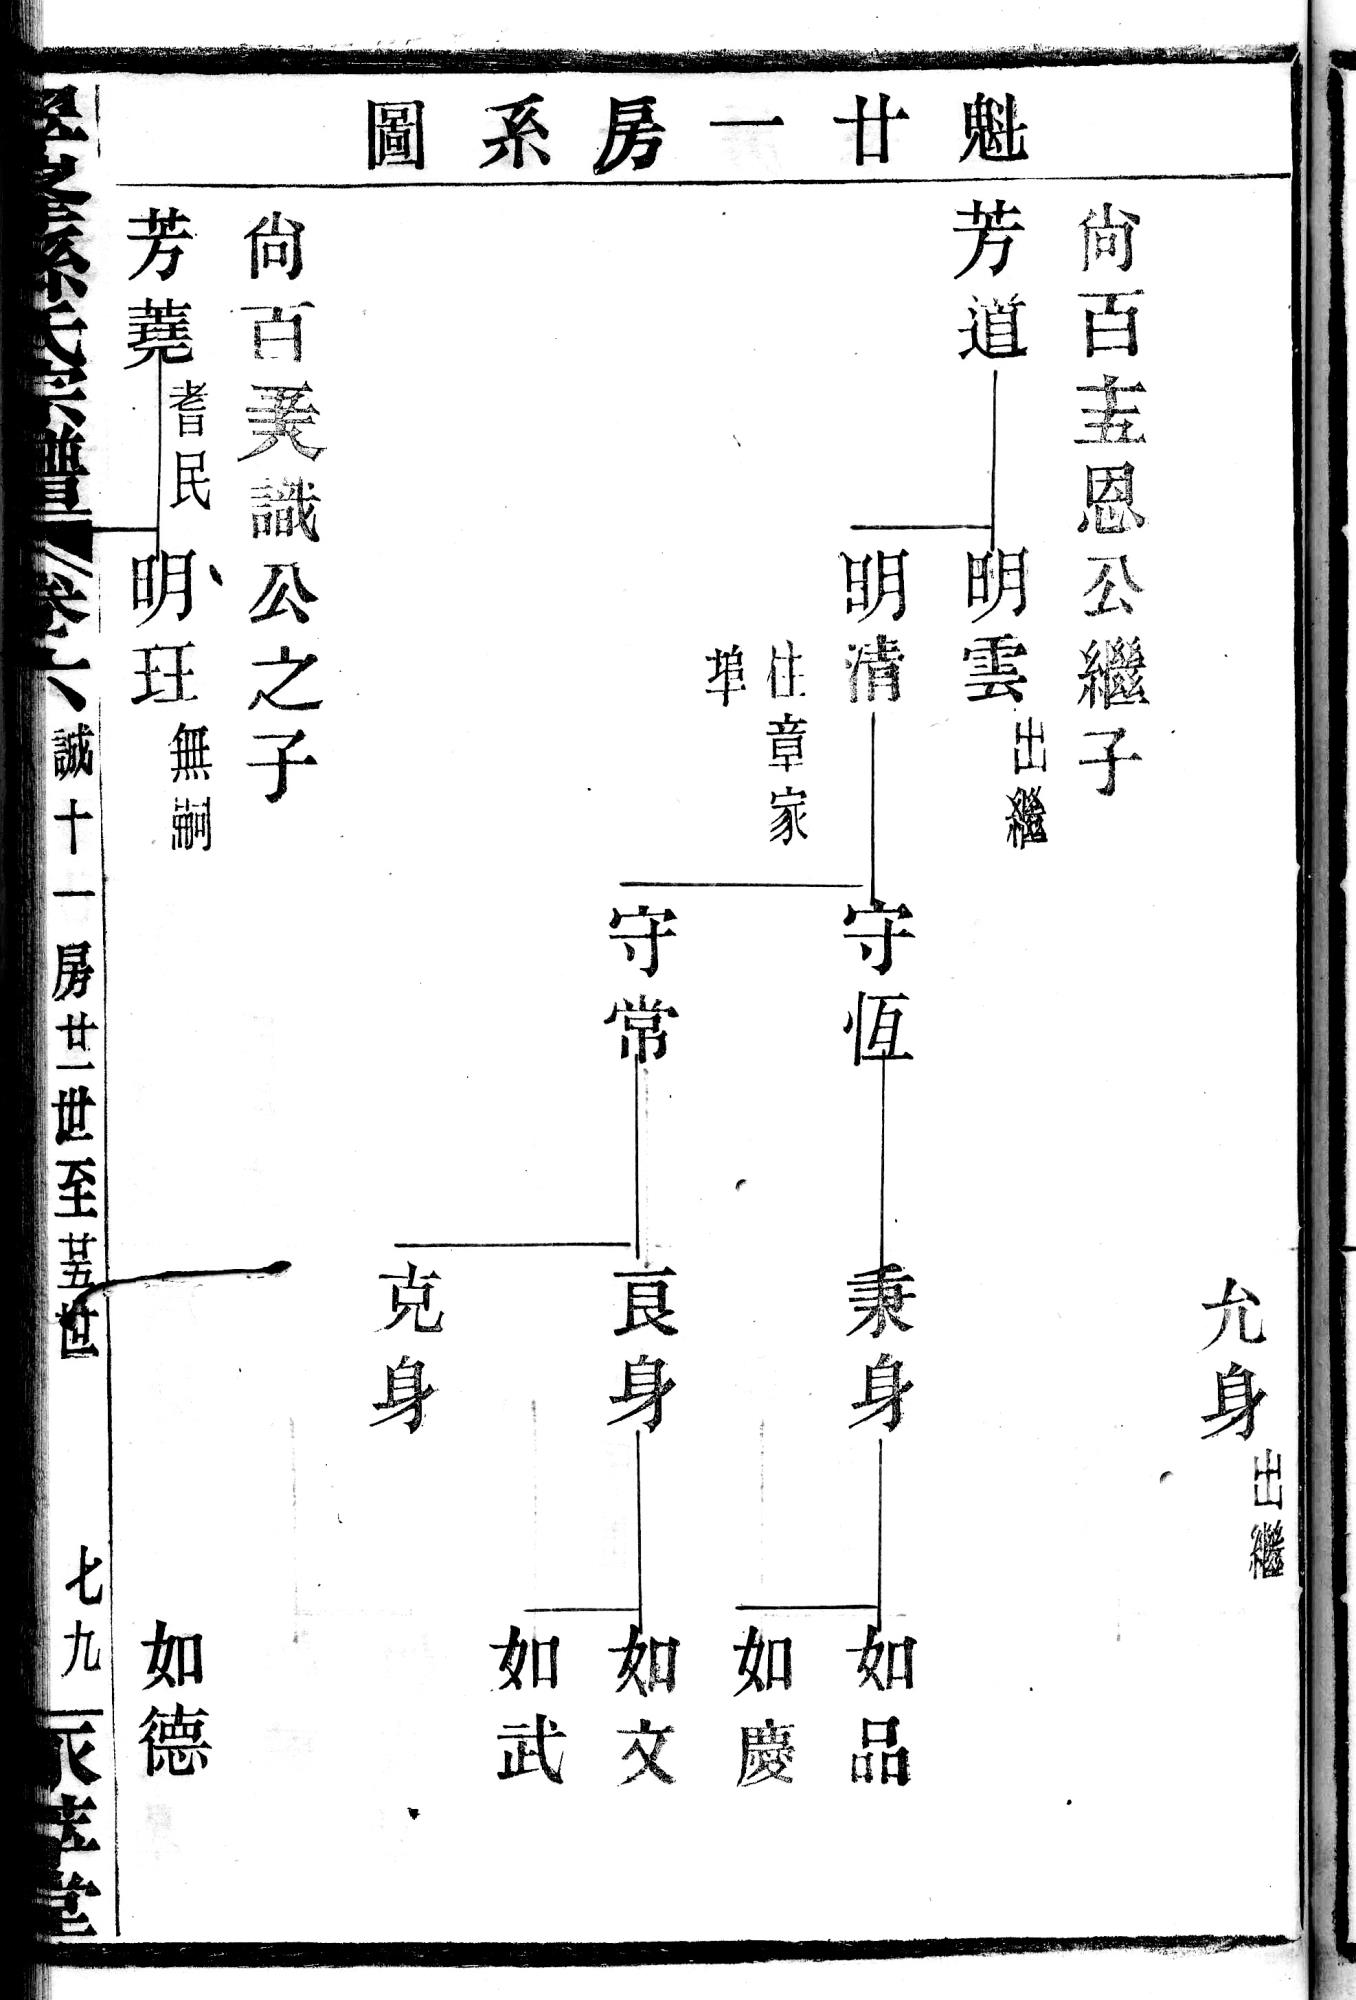 魁廿一房系圖
允身
出繼
尙百圭恩公繼子
芳道
明雲
出繼
明清
住章家
埠
守恆
秉身
如品
如慶
守常
良身
如文
如武
克身
尙百美識公之子
芳蕘
耆民
明玨
無嗣
如德
孫氏宗譜
卷六
誠十一房廿一世至廿五世
七九
堂